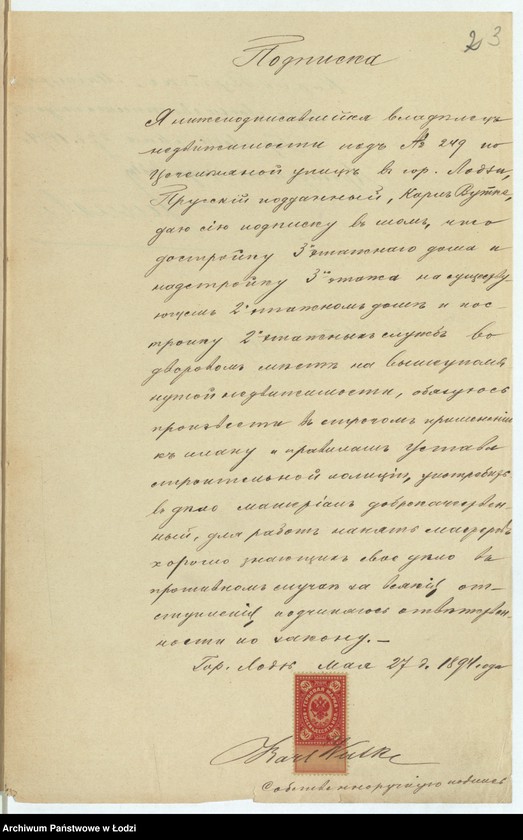 23
Подписка
Я нижеподписавшійся владѣлецъ
недвижимости подъ № 249 по
улицѣ въ гор. Лодзи,
Прускій подданный, Карлъ Вутке,
даю сію подписку въ томъ, что
достройку 3хъ этажнаго дома и
надстройку 3го этажа на существу
ющемъ 2хъ этажномъ домѣ и пос
тройку 2хъ этажныхъ службъ во
дворовомъ мѣстѣ на вышеупомя
нутой недвижимости, обязуюсь
произвести въ строгомъ примѣненіи
къ плану и правиламъ Устава
строительной полиціи, употребить
въ дѣло матеріалъ доброкачествен
ный, для работъ нанять мастеровъ
хорошо знающихъ свое дѣло въ
противномъ случаѣ за всякія от-
ступленія подчиняюсь отвѣтствен
ности по закону. —
Гор. Лодзь Мая 27 д. 1894 года
Karl Wutke
Собственноручную подпись
Archiwum Państwowe w Łodzi